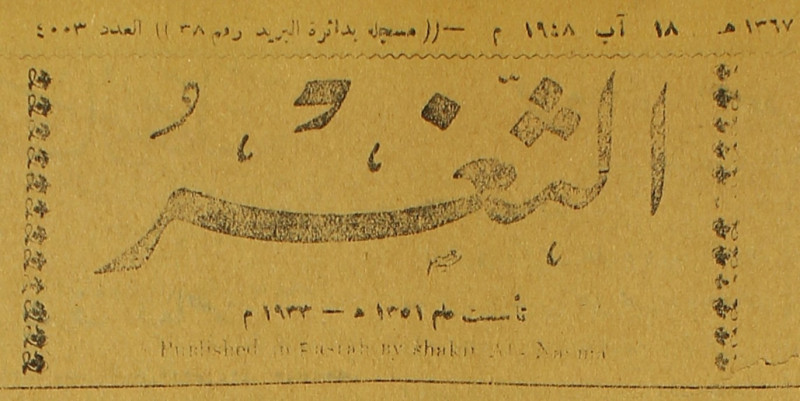 ١٣٦٧ هـ ١٨ آب ١٩٤٨ م — (( مسجله بدائرة البريد رقم ٣٨ )) العدد ٤٠٠٣
الثغر
تأسست عام ١٣٥١ ه — ١٩٣٣ م
Published in Basrah by Shakir Al - Naama